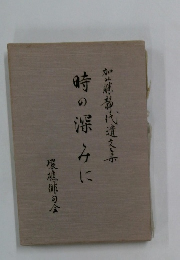 加藤龍代遺文集
時の深みに
環礁俳句会